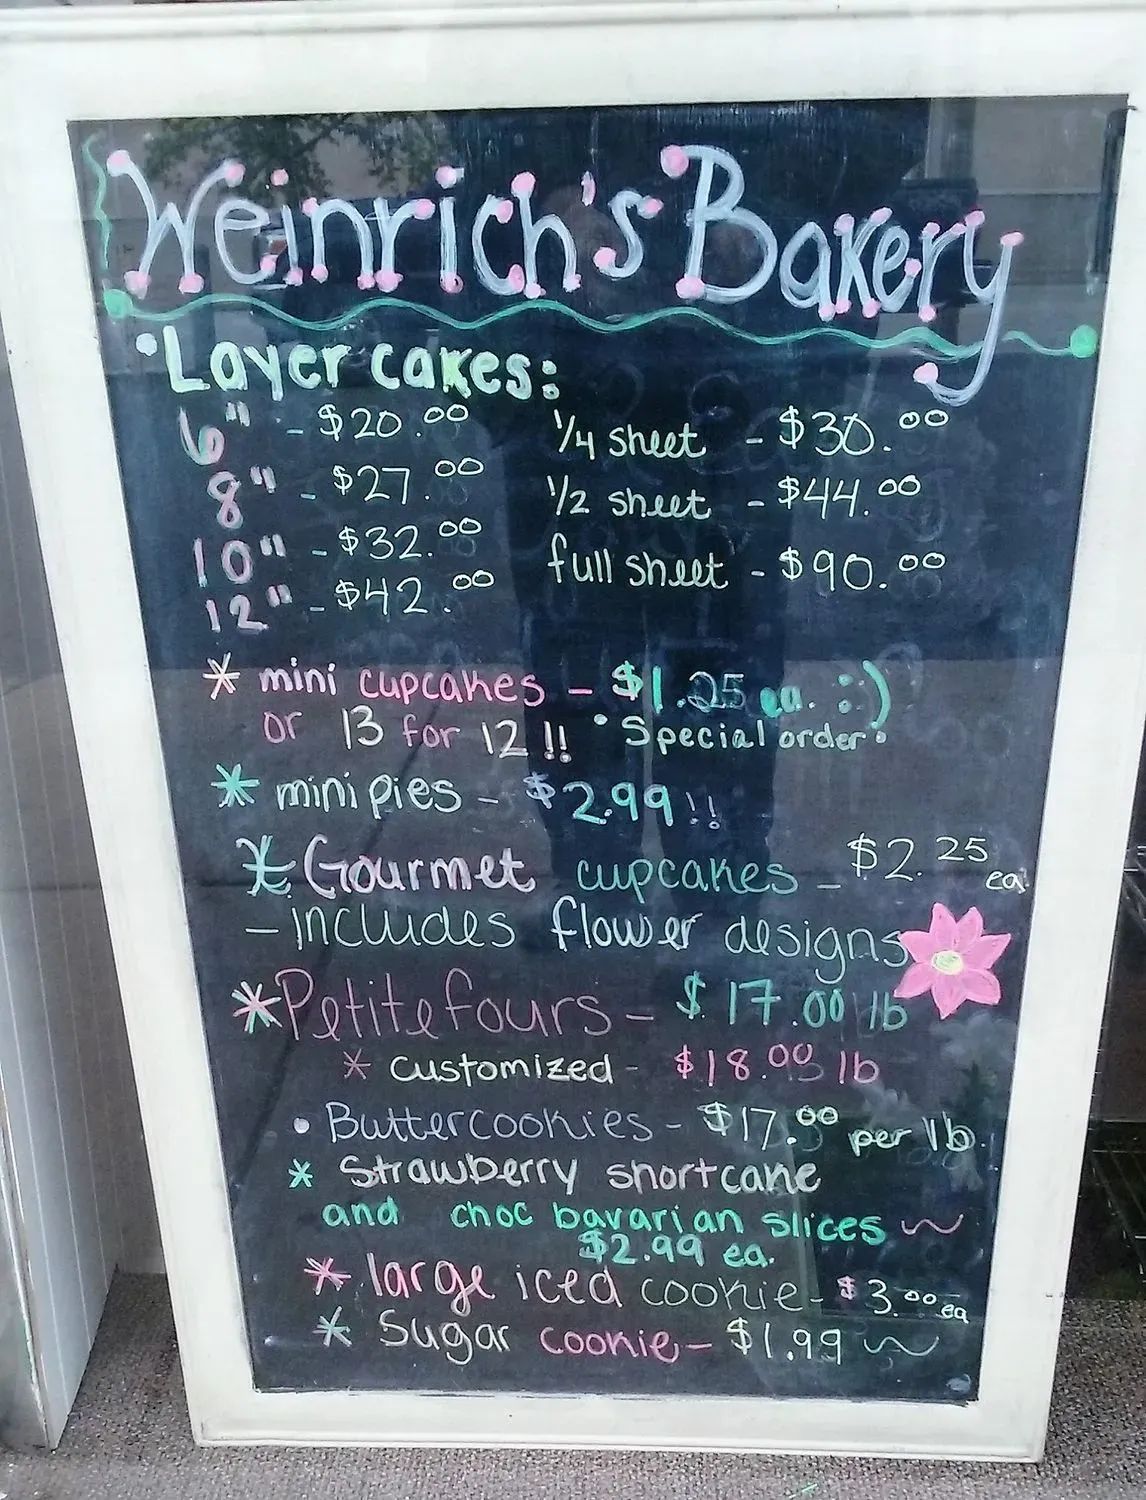 Weinrich's Bakery
• Layer cakes:
6" - $20.00 1/4 sheet - $30.00
8" - $27.00 1/2 sheet - $44.00
10" - $32.00 full sheet - $90.00
12" - $42.00
* mini cupcakes - $1.25 ea. :)
or 13 for 12 !! •Special order•
* mini pies - $2.99 !!
* Gourmet cupcakes - $2.25 ea
- includes flower designs
* Petite fours - $17.00 lb
* customized - $18.00 lb
• Butter cookies - $17.00 per lb.
* Strawberry shortcake
and choc bavarian slices ~
$2.99 ea.
* large iced cookie - $3.00 ea
* Sugar cookie - $1.99 ~